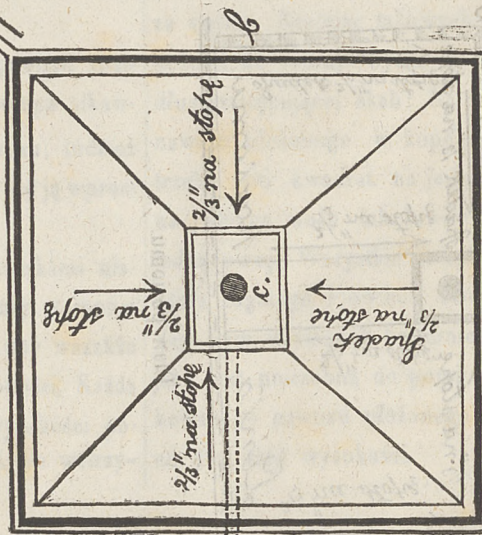 2/3" na stopę
2/3" na stopę
c.
Spadek
2/3" na stopę
2/3" na stopę